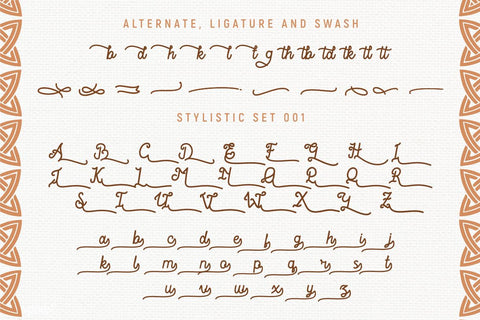 ALTERNATE, LIGATURE AND SWASH
b d h k l t g th tb td tk tl tt
STYLISTIC SET 001
A B C D E F G H I
J K L M N O P Q R
S T U V W X Y Z
a b c d e f g h i j
k l m n o p q r s t
u v w x y z